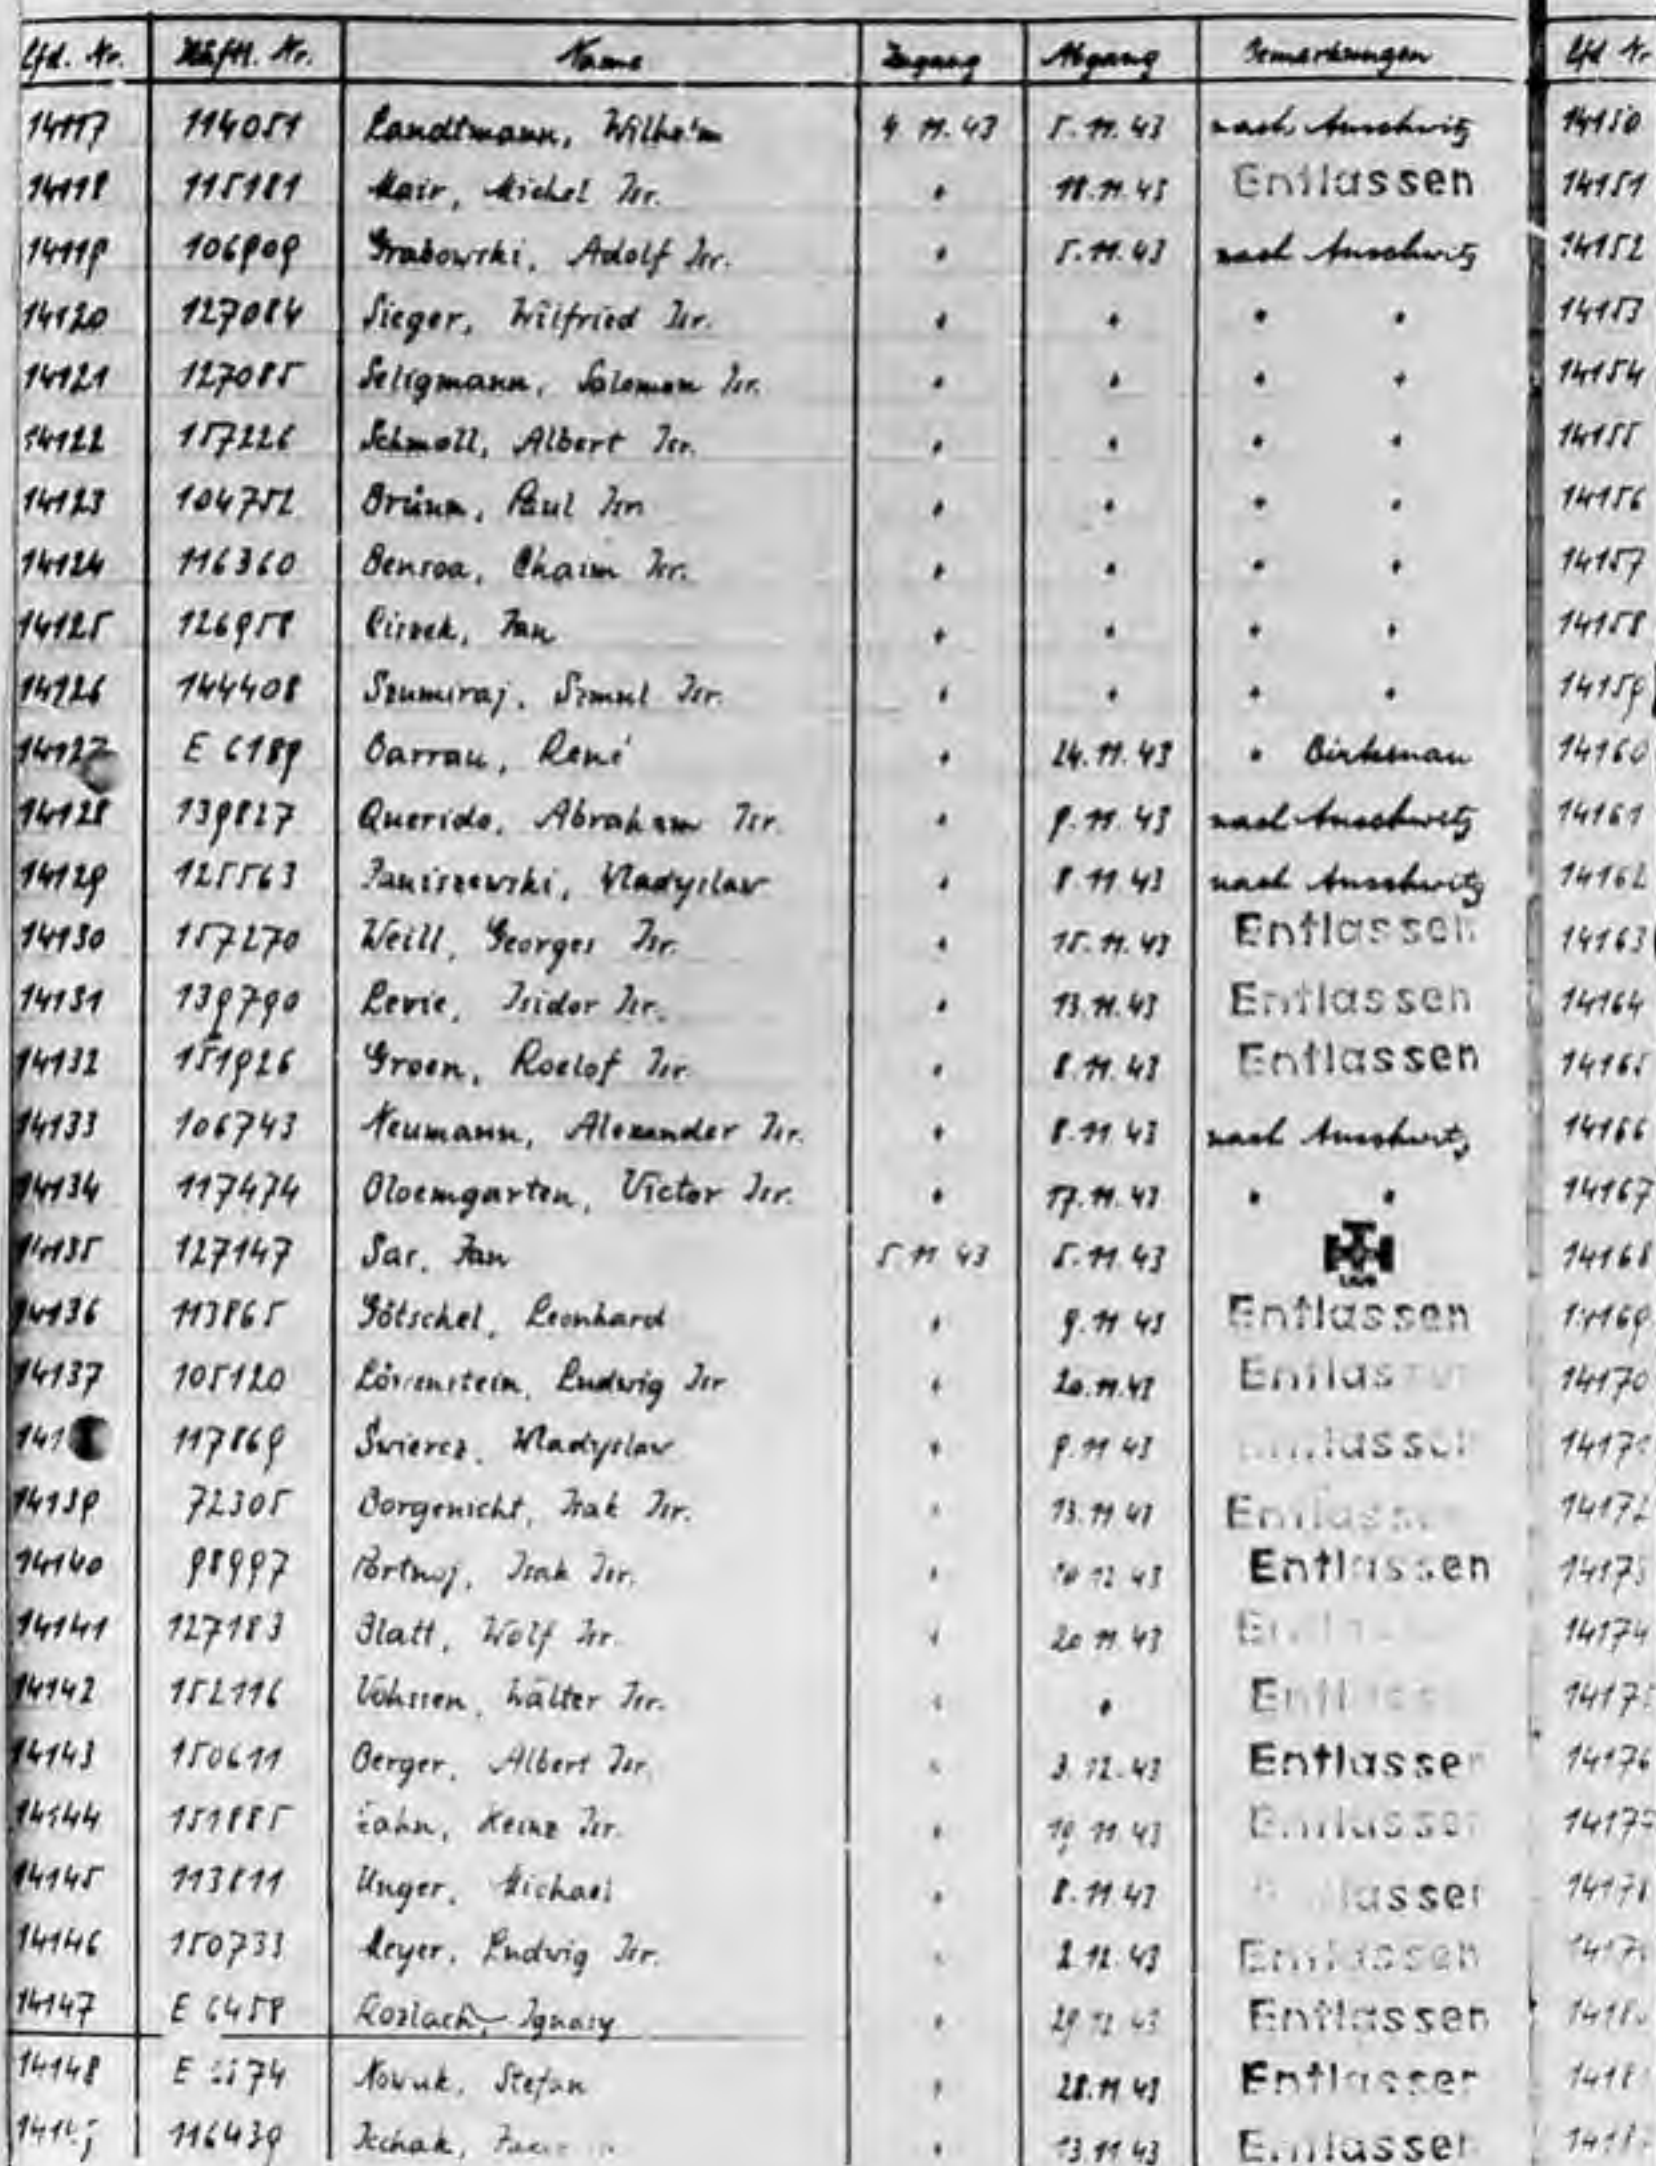 Lfd. Nr. Häftl. Nr. Name Zugang Abgang Bemerkungen Lfd Nr
14117 114051 Landtmann, Wilhelm 4.11.43 5.11.43 nach Auschwitz 14150
14118 115181 Mair, Michel Isr. " 18.11.43 Entlassen 14151
14119 106909 Grabowski, Adolf Isr. " 5.11.43 nach Auschwitz 14152
14120 127084 Sieger, Wilfried Isr. " " " " 14153
14121 127085 Seligmann, Salomon Isr. " " " " 14154
14122 157226 Schmoll, Albert Isr. " " " " 14155
14123 104752 Brünn, Paul Isr. " " " " 14156
14124 116360 Bensoa, Chaim Isr. " " " " 14157
14125 126958 Jan " " " " 14158
14126 144408 Szumiraj, Szmul Isr. " " " " 14159
14127 E 6189 Barrau, René " 24.11.43 " Birkenau 14160
14128 139827 Querido, Abraham Isr. " 9.11.43 nach Auschwitz 14161
14129 125563 Janiszewski, Wladyslaw " 8.11.43 nach Auschwitz 14162
14130 157270 Weill, Georges Isr. " 15.11.43 Entlassen 14163
14131 139790 Levie, Isidor Isr. " 13.11.43 Entlassen 14164
14132 151926 Groen, Roelof Isr. " 8.11.43 Entlassen 14165
14133 106743 Neumann, Alexander Isr. " 8.11.43 nach Auschwitz 14166
14134 117474 Bloemgarten, Victor Isr. " 17.11.43 " " 14167
14135 127147 Sar, Jan 5.11.43 5.11.43 14168
14136 113865 Götschel, Leonhard " 9.11.43 Entlassen 14169
14137 105120 Löwenstein, Ludwig Isr " 20.11.43 Entlas 14170
141 117869 Świercz, Wladyslaw " 9.11.43 lassen 1417
14139 72305 Borgenicht, Isak Isr. " 13.11.43 Entlassen 14172
14140 98997 Portnoj, Isak Isr. " 10.12.43 Entlassen 14173
14141 127183 Blatt, Wolf Isr. " 20.11.43 14174
14142 152116 Vohssen, Walter Isr. " " Entlass 1417
14143 150611 Berger, Albert Isr. " 3.12.43 Entlassen 14176
14144 151885 Heinz Isr. " 19.11.43 Entlassen 1417
14145 113811 Unger, Michael " 8.11.43 lassen 14178
14146 150733 Meyer, Ludwig Isr. " 2.12.43 Entlassen
14147 E 6458 Kozlach, Ignacy " 29.12.43 Entlassen 1418
14148 E 74 Nowak, Stefan " 28.11.43 Entlassen 1418
116439 " 13.11.43 Entlassen 1418